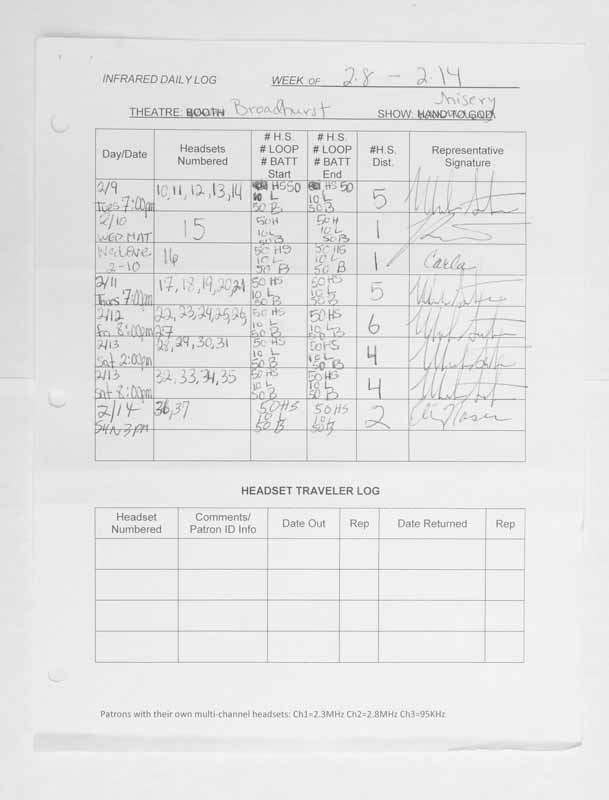 INFRARED DAILY LOG WEEK OF 2.8 - 2.14
THEATRE: BOOTH Broadhurst SHOW: HAND TO GOD Misery
Day/Date
Headsets Numbered
# H.S. # LOOP # BATT Start
# H.S. # LOOP # BATT End
#H.S. Dist.
Representative Signature
2/9 Tues 7:00pm
10, 11, 12, 13, 14
HS 50 10 L 50 B
HS 50 10 L 50 B
5
2/10 WED MAT
15
50H 10L 50B
50H 10L 50B
1
Wed eve 2-10
16
50 HS 10 L 50 B
50 HS 10 L 50 B
1
Carla
2/11 Thurs 7:00pm
17, 18, 19, 20, 21
50 HS 10 L 50 B
50 HS 10 L 50 B
5
2/12 Fri 8:00pm
22, 23, 24, 25, 26, 27
50 HS 10 L 50 B
50 HS 10 L 50 B
6
2/13 Sat 2:00pm
28, 29, 30, 31
50 HS 10 L 50 B
50 HS 10 L 50 B
4
2/13 Sat 8:00pm
32, 33, 34, 35
50 HS 10 L 50 B
50 HS 10 L 50 B
4
2/14 SUN 3 PM
36, 37
50 HS 10 L 50 B
50 HS 10 L 50 B
2
HEADSET TRAVELER LOG
Headset Numbered
Comments/ Patron ID Info
Date Out
Rep
Date Returned
Rep
Patrons with their own multi-channel headsets: Ch1=2.3MHz Ch2=2.8MHz Ch3=95KHz